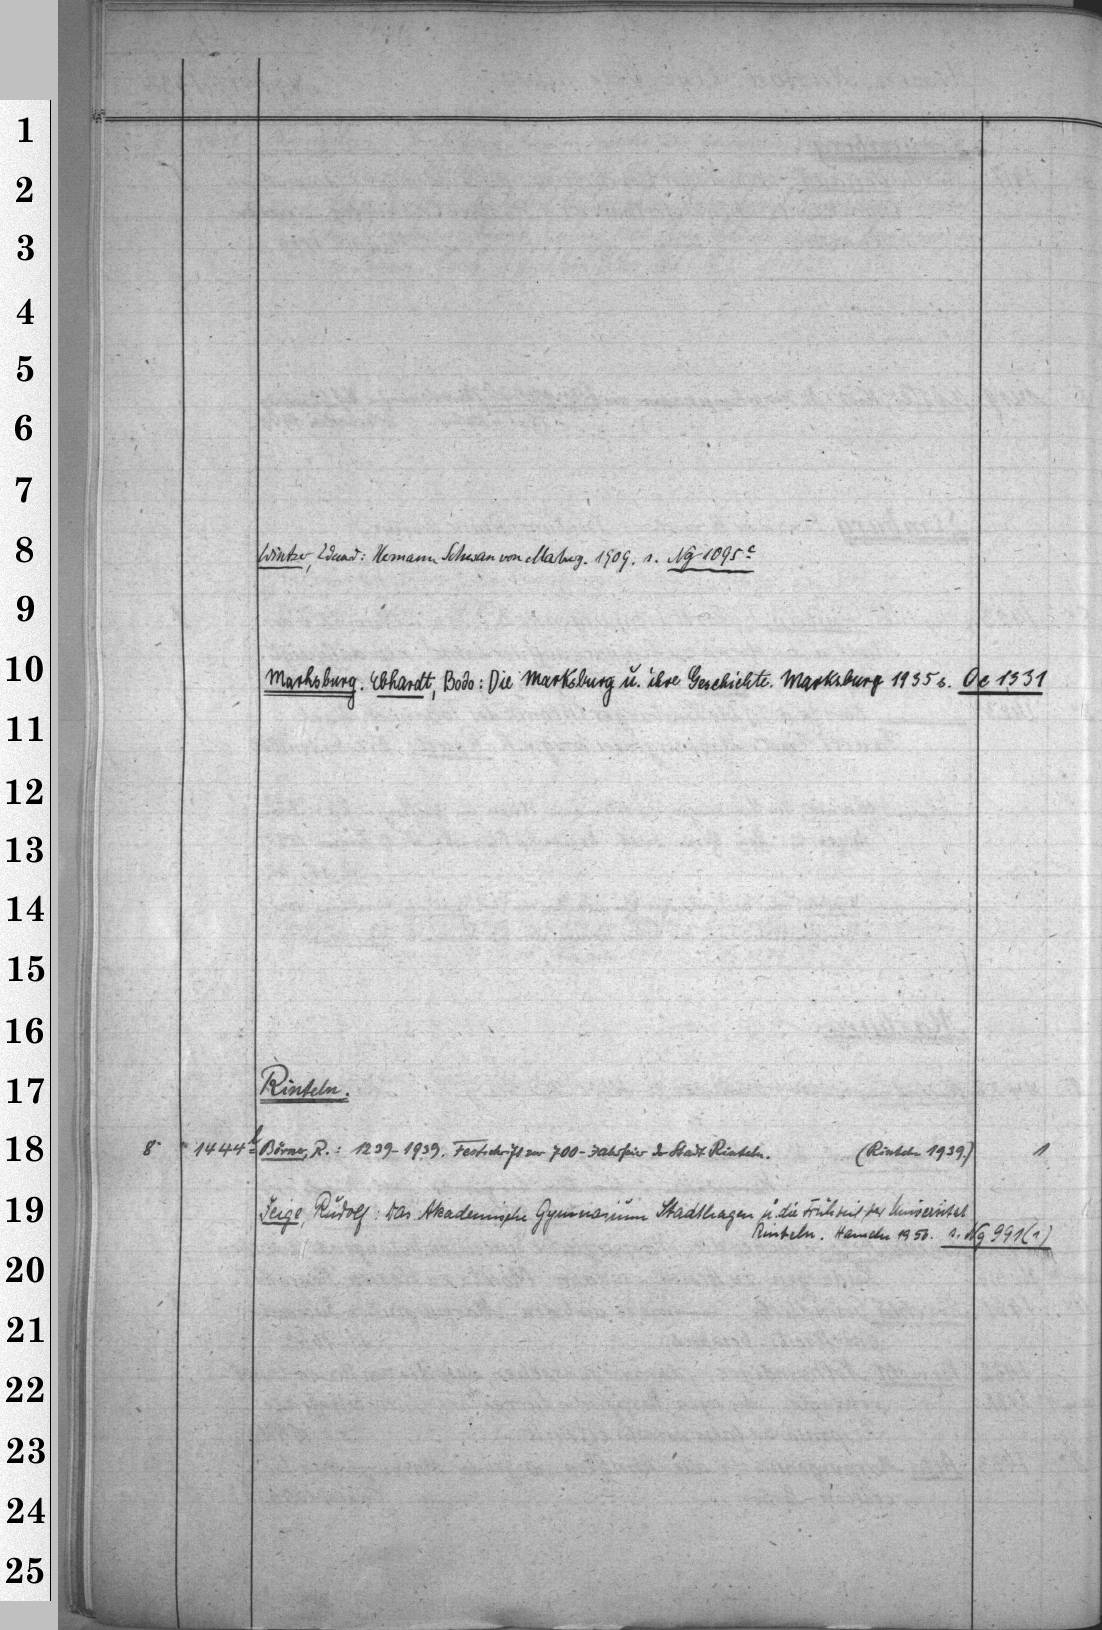 1
2
3
4
5
6
7
8
Wintzer, Eduard: Hermann Schwan von Marburg. 1909. s. Ng 1095 c
9
10
Marksburg. Ebhardt, Bodo: Die Marksburg u. ihre Geschichte. Marksburg 1935 s. Oe 1331
11
12
13
14
15
16
17
Rinteln.
18
8° 1444 b Börner, R.: 1239-1939. Festschrift zur 700-Jahrfeier der Stadt Rinteln. (Rinteln 1939.) 1
19
Feige, Rudolf: Das Akademische Gymnasium Stadthagen u. die Frühzeit der Universität
Rinteln. Hameln 1956. s. Ng 991(1)
20
21
22
23
24
25